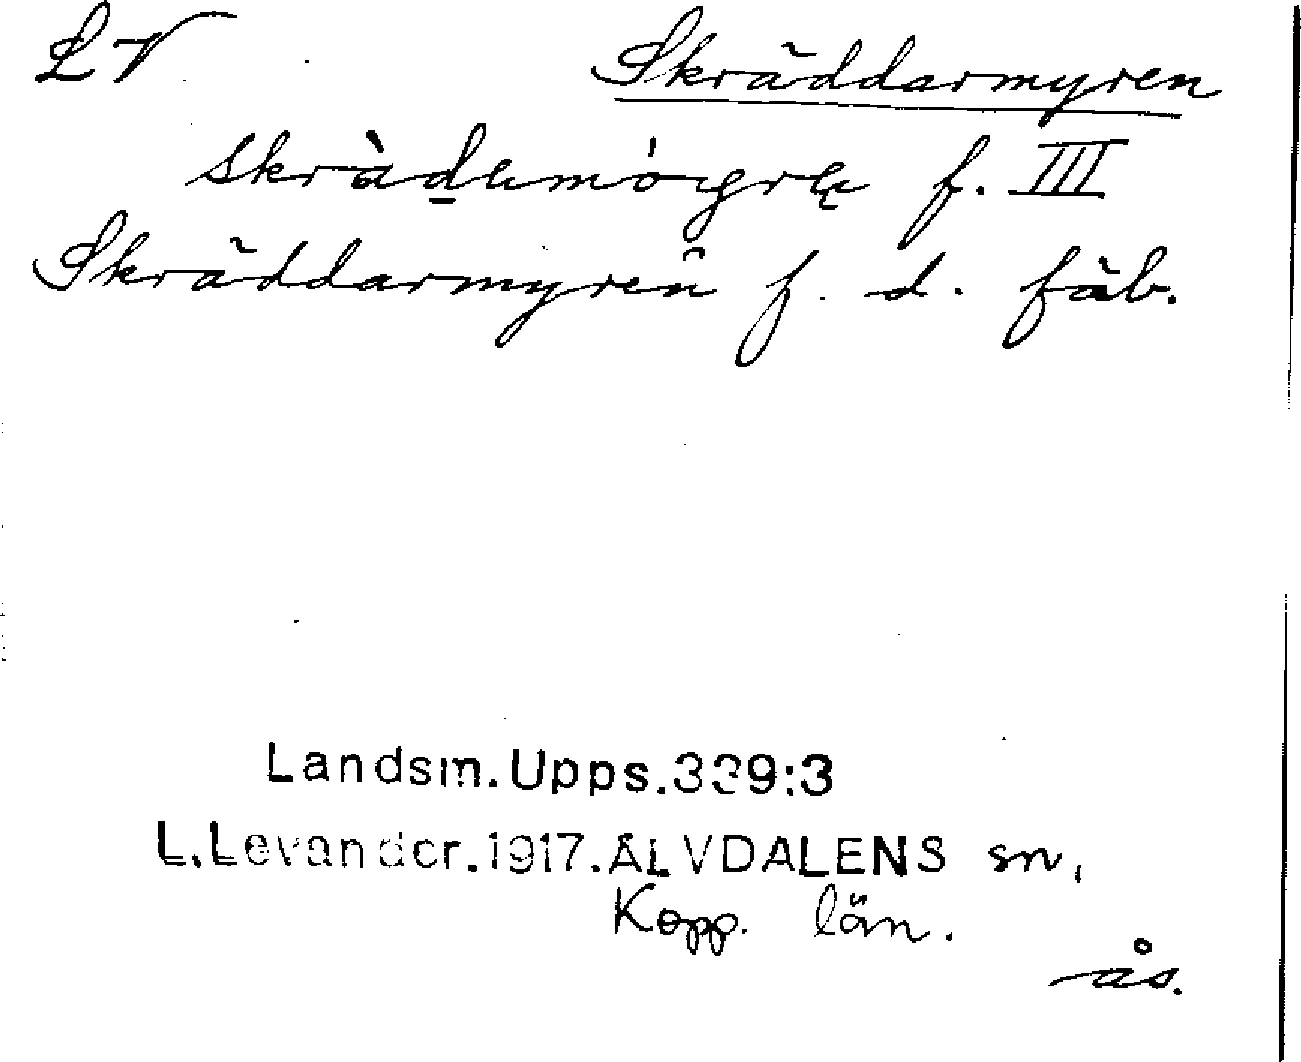 LV Skräddarmyren
skràdamógrę f. III
Skräddarmyren f. d. fäb.
Landsm. Upps. 339:3
L. Levander. 1917. ÄLVDALENS sn,
Kopp. län.
ås.